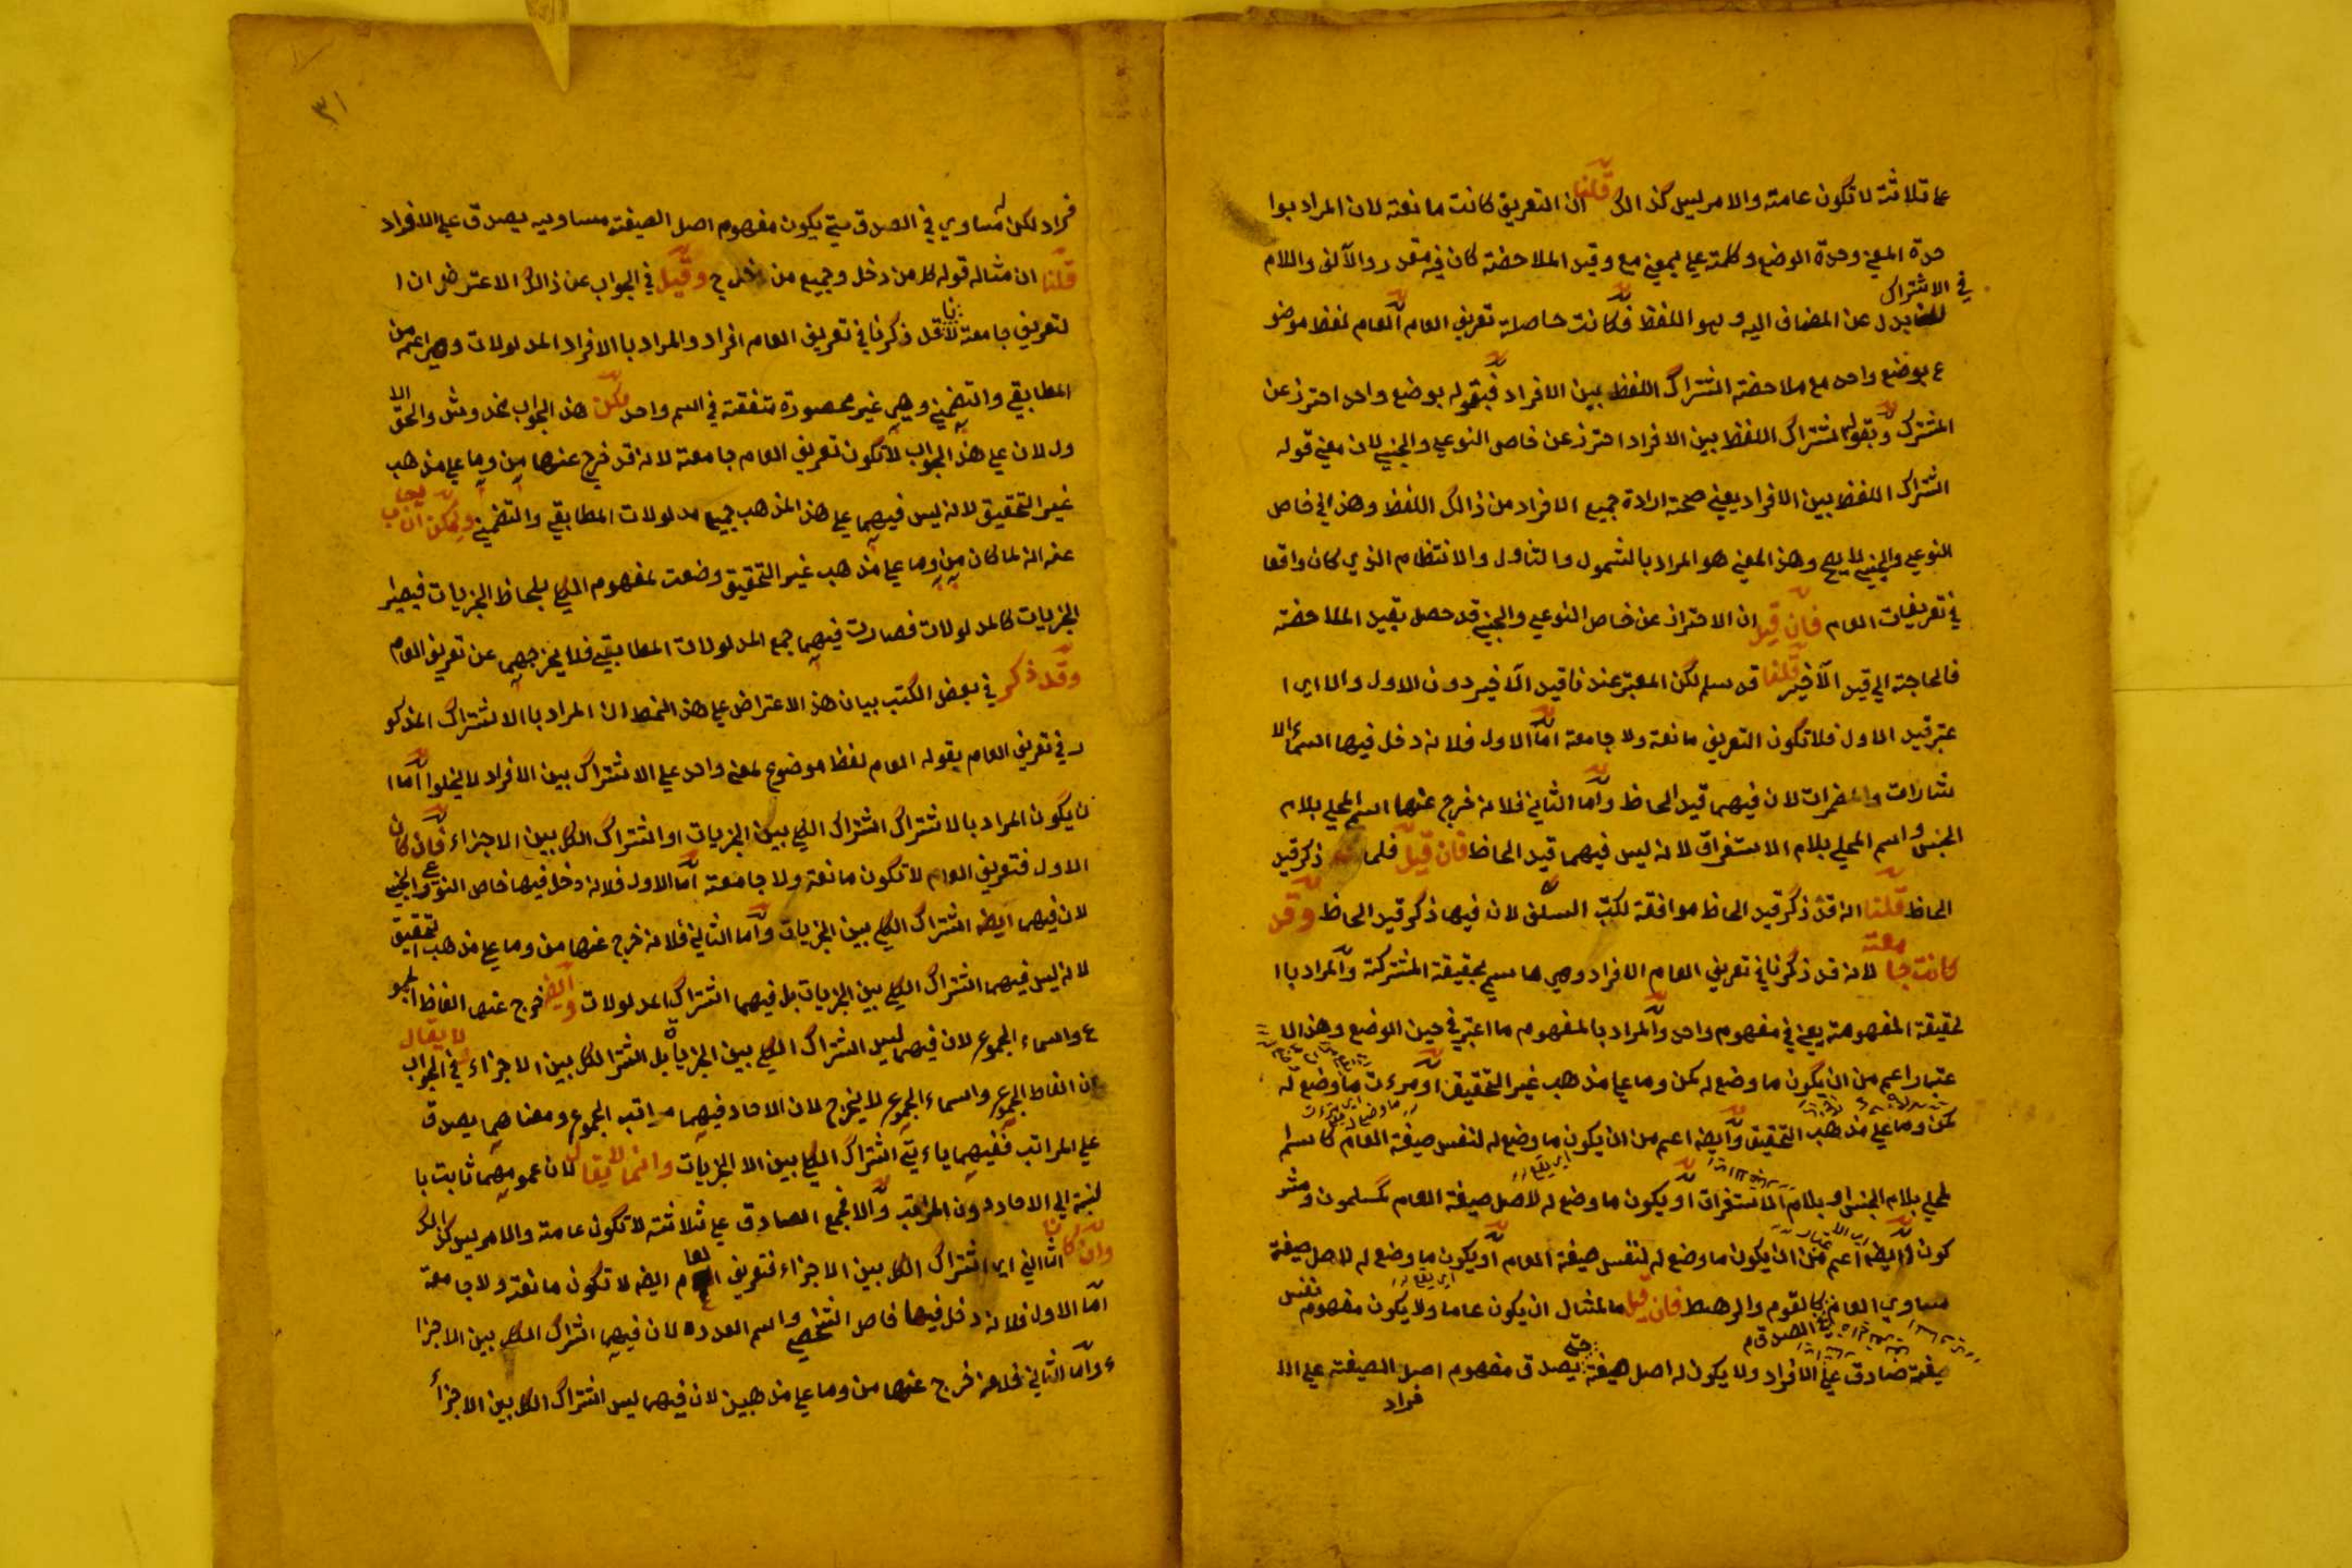 على ثلاثة لا تكون عامة والامر ليس كذالك قلنا ان التعريف كانت مانعة لان المراد بوا
حدة المعنى وحدة الوضع وكلمة على بمعنى مع وقيد الملاحضة كان فيه مقدر والآلف واللام
في الاشتراك بدل عن المضاف اليه وهو اللفظ فكانت حاصلة تعريف العام العام لفظ موضو
ع بوضع واحد مع ملاحضة اشتراك اللفظ بين الافراد فبقوله بوضع واحد احترز عن
المشترك وبقوله اشتراك اللفظ بين الافراد احترز عن خاص النوعي والجنسي لان معنى قوله
اشتراك اللفظ بين الافراد يعني صحة ارادة جميع الافراد من ذالك اللفظ وهذا في خاص
النوعي والجنسي لا يصح وهذا المعنى هو المراد بالشمول والتناول والانتظام الذي كان واقعا
في تعريفات العام فان قيل ان الاحتراز عن خاص النوعي والجنسي قد حصل بقيد الملاحضة
فالحاجة الى قيد الآخير قلنا قد سلم لكن المعتبر عندنا قيد الآخير دون الاول والا اي ا
عتبر قيد الاول فلا تكون التعريف مانعة ولا جامعة اما الاول فلانه دخل فيها اسماء الا
شارات والمضمرات لان فيهما قيد الحاظ واما الثاني فلانه خرج عنها اسم المحلي بلام
الجنس واسم المحلي بلام الاستغراق لانه ليس فيهما قيد الحاظ فان قيل فلما ذكر قيد
الحاظ قلنا انه قد ذكر قيد الحاظ موافقة لكتب السلف لانه فيها ذكر قيد الحاظ وقد
كانت جامعة لانه قد ذكرنا في تعريف العام الافراد وهي ما سيم بحقيقة المشتركة والمراد با
لحقيقة المفهومة يعني في مفهوم واحد والمراد بالمفهوم ما اعتبر في حين الوضع وهذا الا
عتبار اعم من ان يكون ما وضع له كمن وما على مذهب غير التحقيق او مرءت ما وضع له
كمن وما على مذهب التحقيق وايضه اعم من ان يكون ما وضع له لنفس صيغة العام كاسم
لمحلي بلام الجنس او بلام الاستغراق او يكون ما وضع له لاصل صيغة العام كمسلمون ومشر
كون وايضه اعم من ان يكون ما وضع له لنفس صيغة العام او يكون ما وضع له لاصل صيغة
مساوي العام كالقوم والرهط فان قيل ما لمثال ان يكون عاما ولا يكون مفهوم نفس
صيغة صادق على الافراد ولا يكون له اصل صيغة حتى يصدق مفهوم اصل الصيغة على الا
فراد
٣١
فراد لكن له مساوي في الصدق حتى يكون مفهوم اصل الصيغة مساويه يصدق على الافراد
قلنا ان مثاله قوله كل من دخل وجميع من دخل ح وقيل في الجواب عن ذالك الاعتراض ان ا
لتعريف جامعة لانا قد ذكرنا في تعريف العام افراد والمراد با الافراد المدلولات وهي اعم من
المطابقي والتضمني وهي غير محصورة متفقة في اسم واحد لكن هذا الجواب مخدوش والحق الا
ول لان على هذا الجواب لا تكون تعريف العام جامعة لانه قد خرج عنها من وما على مذهب
غير التحقيق لانه ليس فيهما على هذا المذهب جميع مدلولات المطابقي والتضمني ويمكن ان يجاب
عنه انه لما كان من وما على مذهب غير التحقيق وضعت لمفهوم الكلي بلحاظ الجزيات فيصير
الجزيات كالمدلولات فصارت فيهما جمع المدلولات المطابقي فلا يخرجهما عن تعريف العام
وقد ذكر في بعض الكتب بيان هذا الاعتراض على هذا النمط ان المراد با الاشتراك المذكو
ر في تعريف العام بقوله العام لفظ موضوع لمعنى واحد على الاشتراك بين الافراد لا يخلوا اما ا
ن يكون المراد بالاشتراك اشتراك الكلي بين الجزيات او اشتراك الكل بين الاجزاء فان كان
الاول فتعريف العام لا تكون مانعة ولا جامعة اما الاول فلانه دخل فيها خاص النوعي والجنسي
لان فيهما ايضه اشتراك الكلي بين الجزيات واما الثاني فلانه خرج عنها من وما على مذهب التحقيق
لانه ليس فيهما اشتراك الكلي بين الجزيات بل فيهما اشتراك المدلولات وايضه خرج عنها الفاظ الجمو
ع واسماء الجموع لان فيهما ليس اشتراك الكلي بين الجزيات بل اشتراك الكل بين الاجزاء لا يقال في الجواب
ان الفاظ الجموع واسماء الجموع لا يخرج لان الاحاد فيهما مراتب الجموع ومعناهما يصدق
على المراتب ففيهما ياءتي اشتراك الكلي بين الا الجزيات وانما لا يقال لان عمومهما ثابت با
لنسبة الى الاحاد دون المراتب والا فجمع الصادق على ثلاثة لا تكون عامة والامر ليس كذالك
وان كان الثاني اي اشتراك الكل بين الاجزاء فتعريف العام ايضه لا تكون مانعة ولا جامعة
اما الاول فلانه دخل فيها خاص الشخصي واسم العدد لان فيهما اشتراك الكل بين الاجزا
ء واما الثاني فلانه خرج عنها من وما على مذهبين لان فيهما ليس اشتراك الكل بين الاجزاء